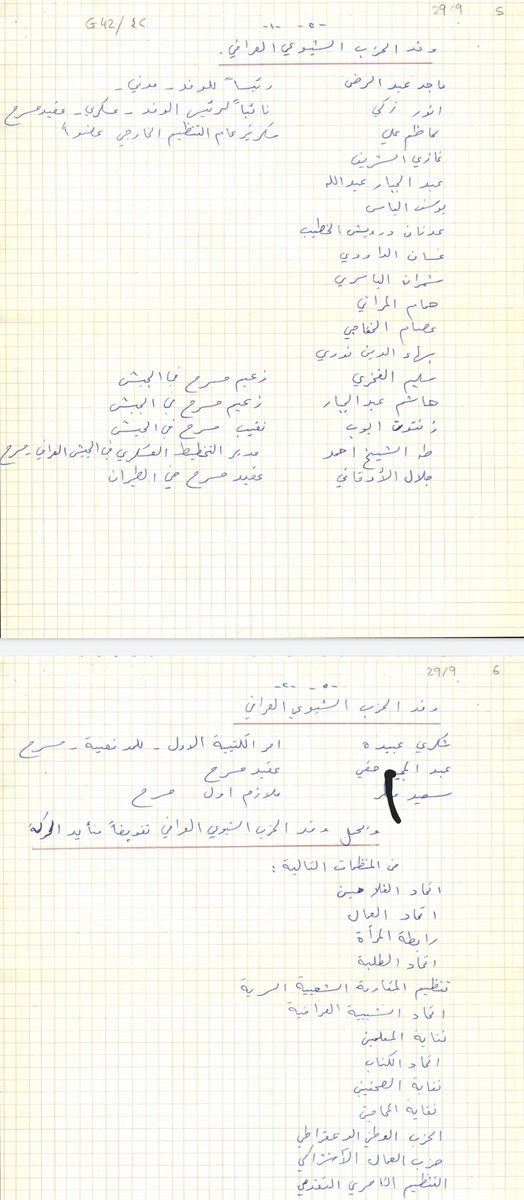 G42/٤٢ -١- -٥- 29/9 5
وفد الحزب الشيوعي العراقي .
ماجد عبد الرضى رئيساً للوفد - مدني -
انور زكي نائباً لرئيس الوفد - عسكري - عقيد مسرح
كاظم علي سكرتير عام التنظيم الخارجي عضو
غازي الشريف
عبد الجبار عبدالله
يوسف الياس
عدنان درويش الخطيب
غسان الداودي
شمران الياسري
همام المراني
عصام الخفاجي
بهاء الدين نوري
سليم الفخري زعيم مسرح في الجيش
هاشم عبد الجبار زعيم مسرح في الجيش
ايوب نقيب مسرح في الجيش
طه الشيخ احمد مدير التخطيط العسكري في الجيش العراقي - مسرح
جلال الأوقاتي عقيد مسرح في الطيران
-٢- -٥- 29/9 6
وفد الحزب الشيوعي العراقي
شكري عبيده امر الكتيبة الاولى - للمدفعية - مسرح
عبد حقي عقيد مسرح
سعيد ملازم اول مسرح
ويحمل وفد الحزب الشيوعي العراقي تفويضاً بتأيد الحركة
من المنظمات التالية :
اتحاد الفلاحين
اتحاد العمال
رابطة المرأة
اتحاد الطلبة
تنظيم المقاومة الشعبية السرية
اتحاد الشبيبة العراقية
نقابة المعلمين
اتحاد الكتاب
نقابة الصحفيين
نقابة المحامين
الحزب الوطني الدمقراطي
حزب العمال الأشتراكي
التنظيم الناصري التقدمي